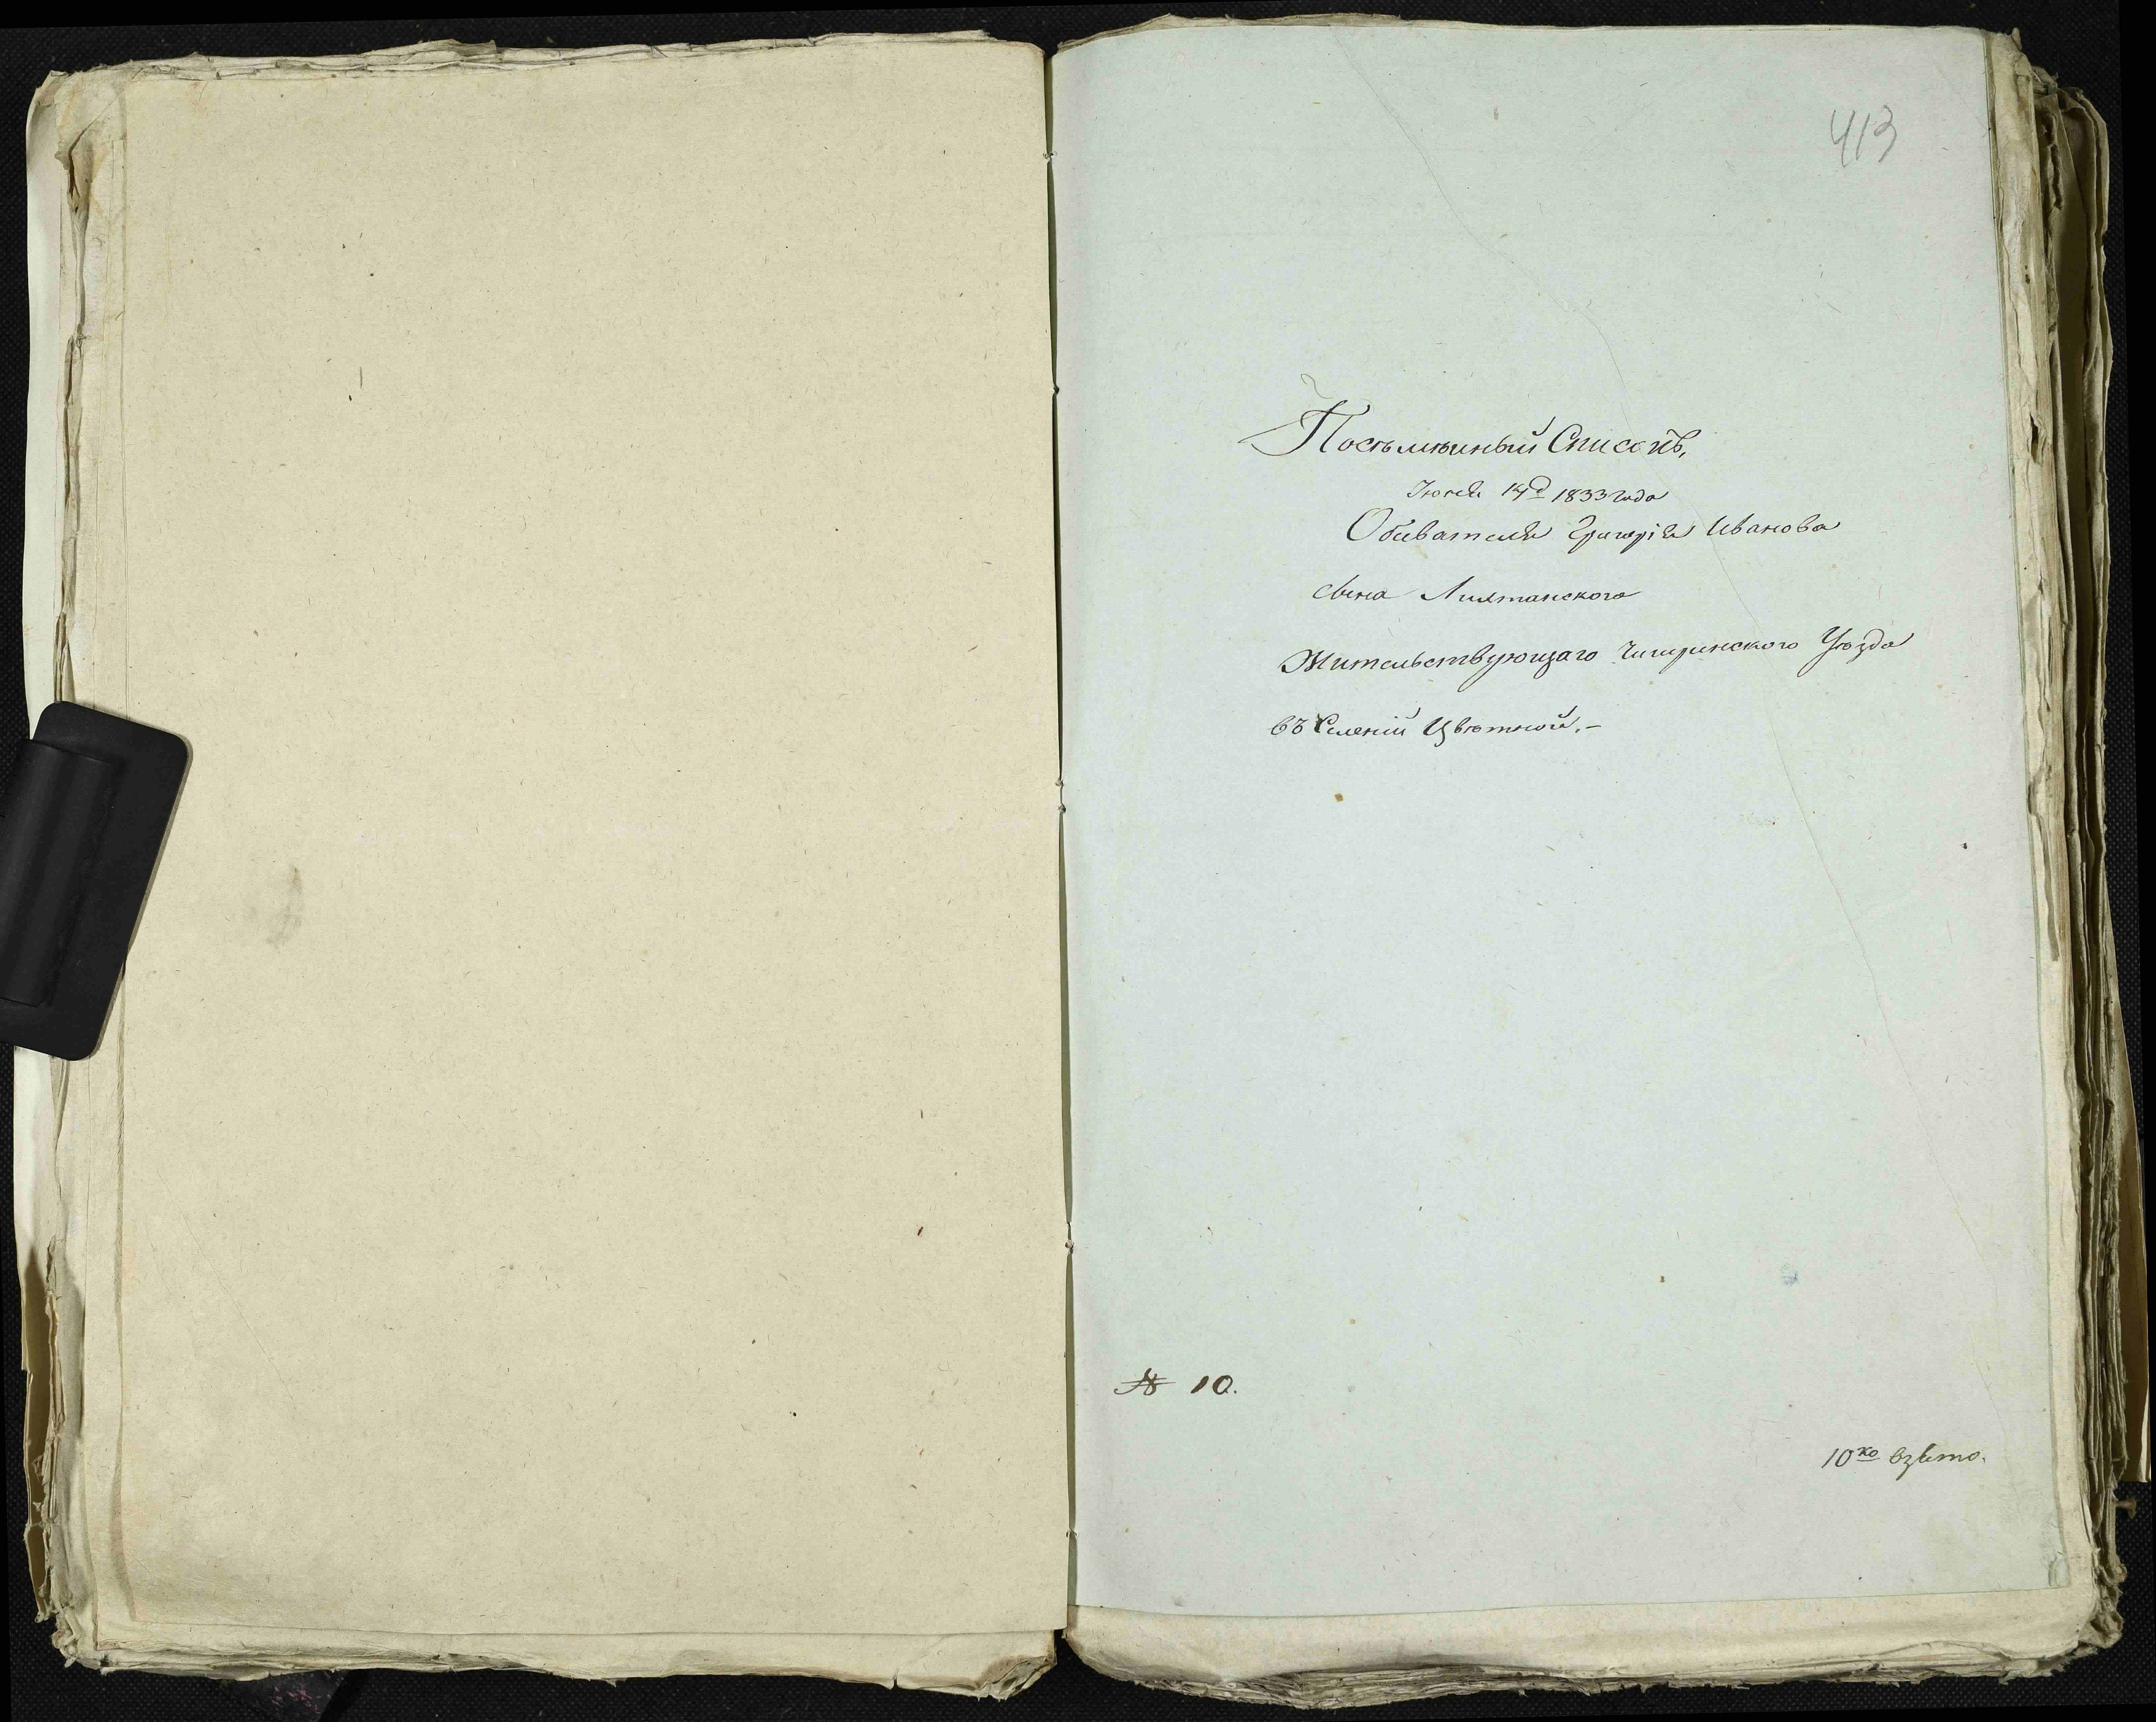 413
Посѣмѣиный Списокъ,
14д 1833 года
Обивателя Григорія Иванова
сына
Жительствующаго Чигиринского Уѣзда
въ Селеніи Цвѣтной.-
№ 10.
10ко взято.